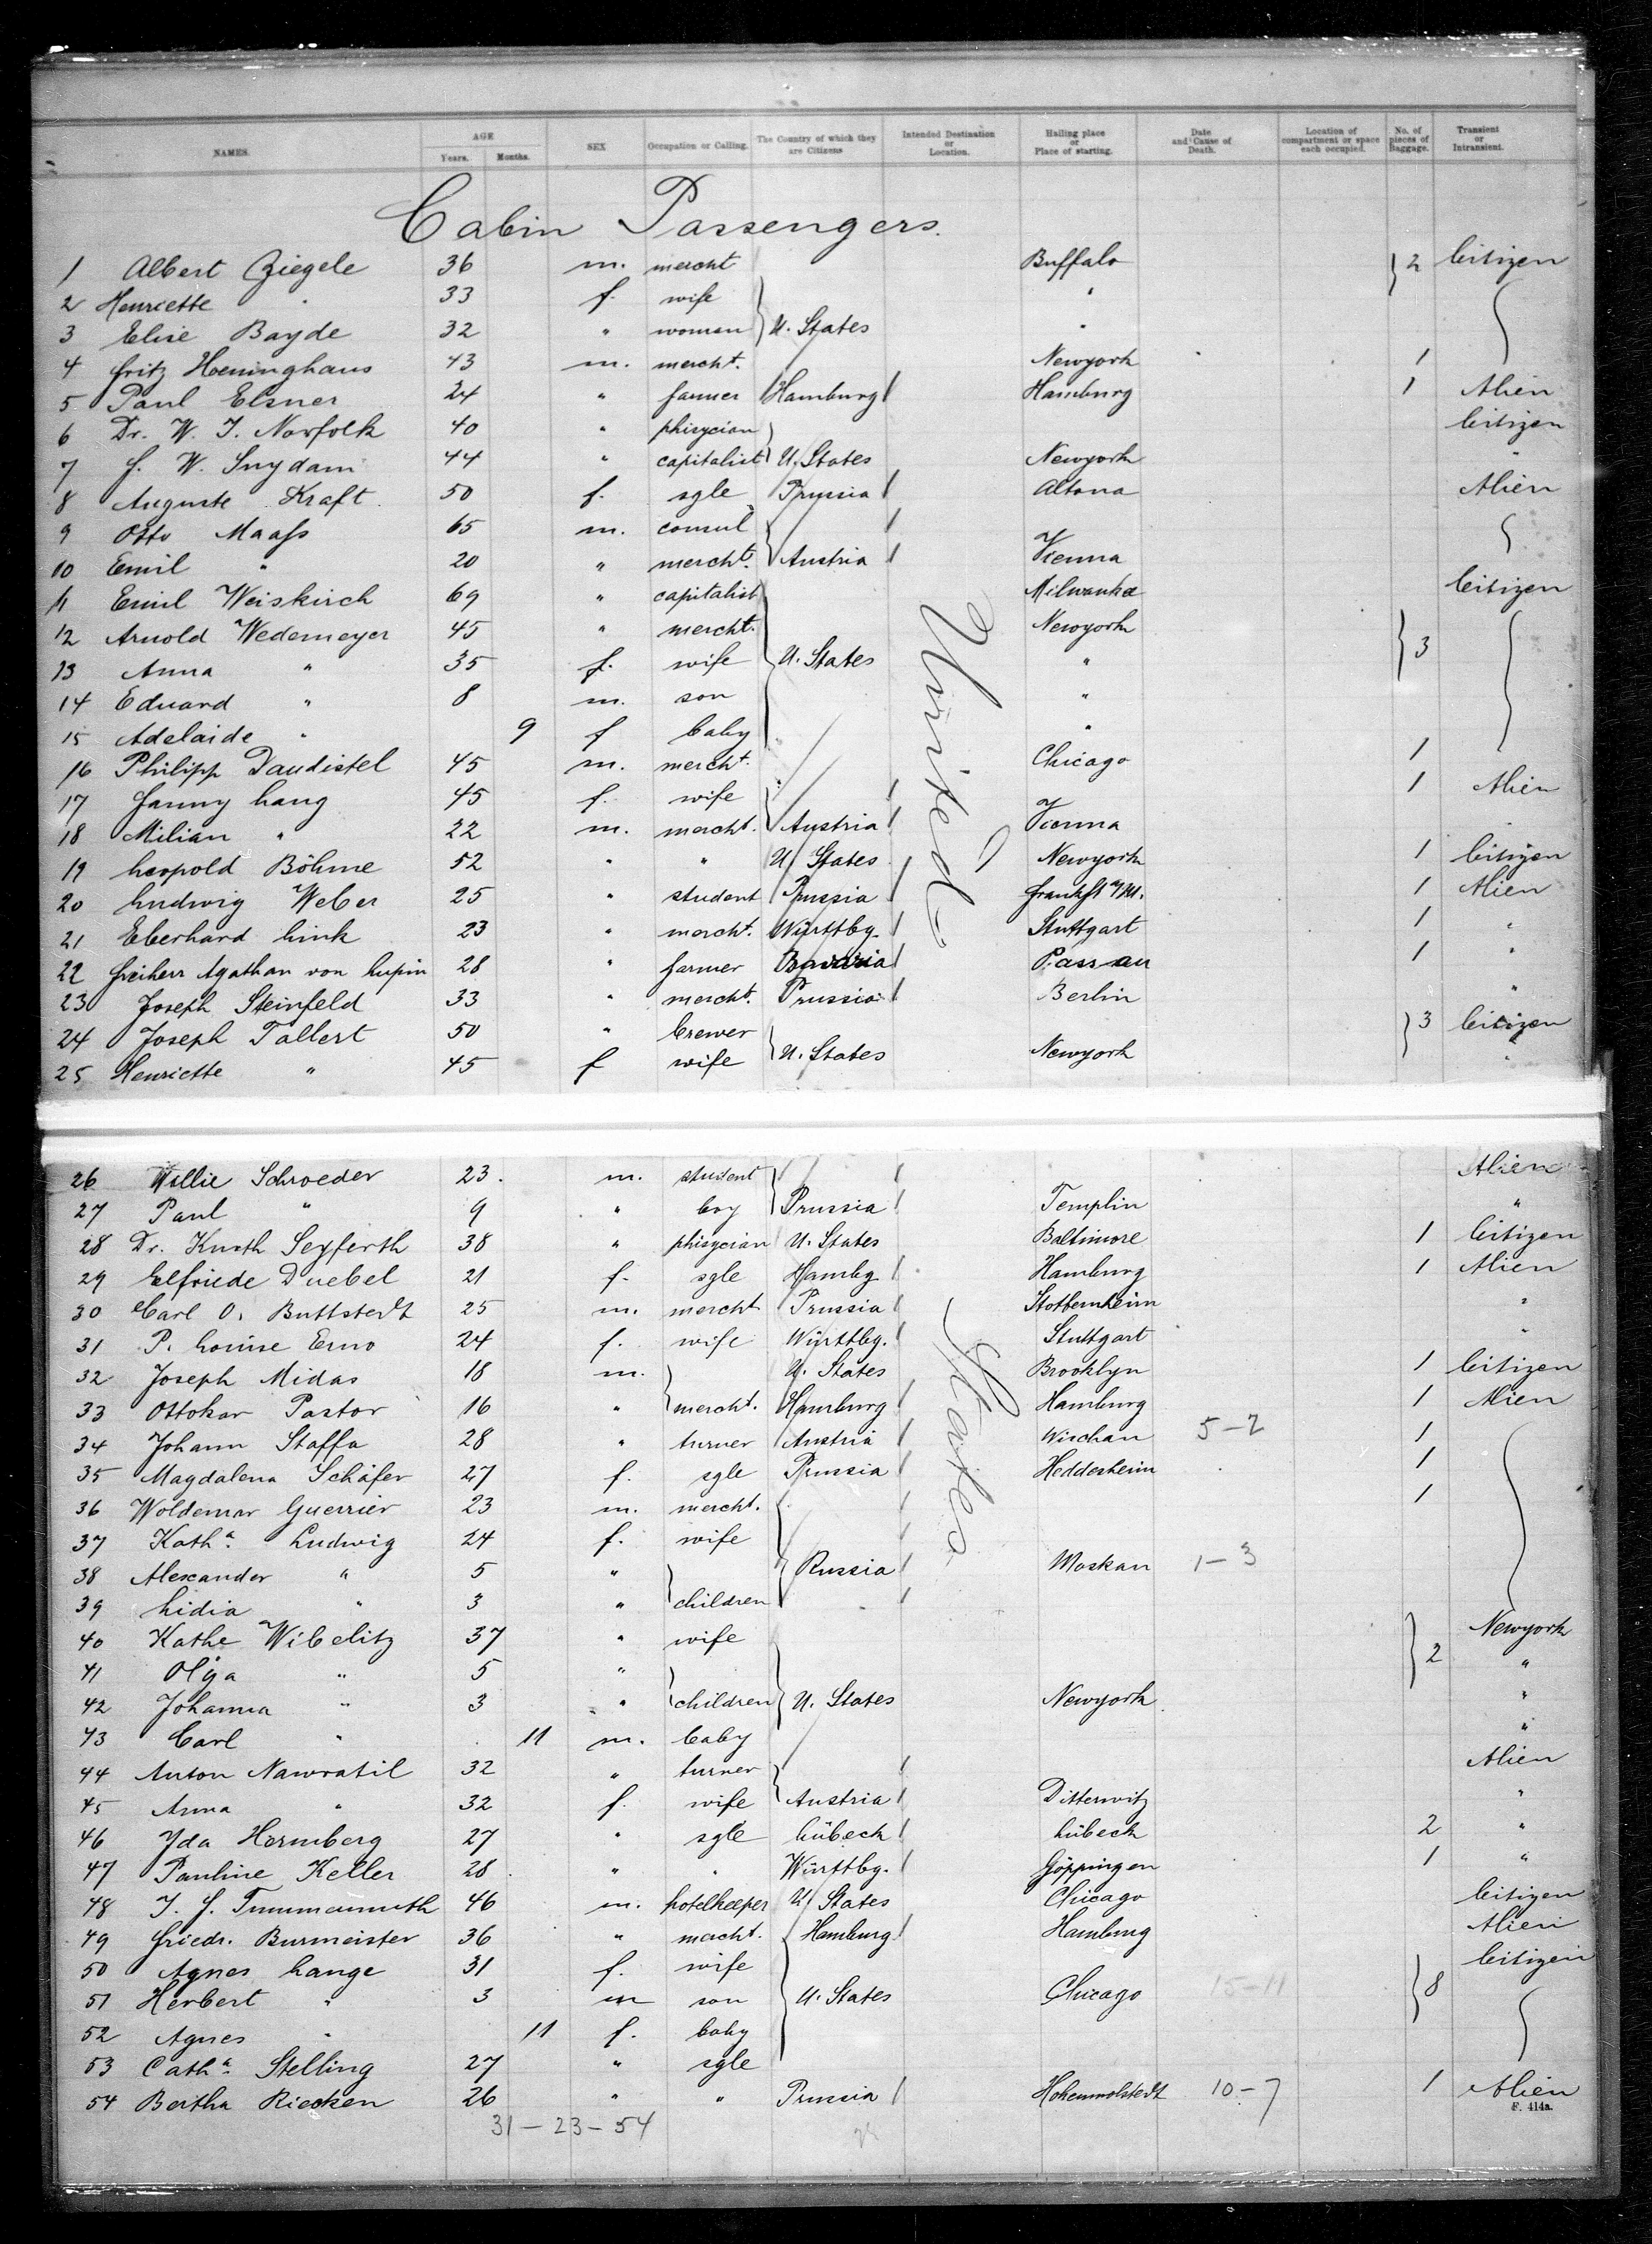 NAMES. AGE Years. Months. SEX Occupation or Calling. The Country of which they are Citizens Intended Destination or Location. Hailing place or Place of starting. Date and Cause of Death. Location of compartment or space each occupied. No. of pieces of Baggage. Transient or Intransient.
Cabin Passengers.
1 Albert Ziegele 36 m. mercht Buffalo 2 Citizen
2 Henriette " 33 f. wife "
3 Elise Bayde 32 " woman U. States "
4 Fritz Heninghaus 43 m. mercht. Newyork 1
5 Paul Elsner 24 " farmer Hamburg Hamburg 1 Alien
6 Dr. W. J. Norfolk 40 " phisycian Citizen
7 J. W. Suydam 44 " capitalist U. States Newyork "
8 Auguste Kraft 50 f. sgle Prussia Altona Alien
9 Otto Maaß 65 m. consul
10 Emil " 20 " mercht. Austria Vienna
11 Emil Weiskirch 69 " capitalist Milwaukee Citizen
12 Arnold Wedemeyer 45 " mercht. Newyork 3
13 Anna " 35 f. wife U. States "
14 Eduard " 8 m. son "
15 Adelaide " 9 f baby "
16 Philipp Daudistel 45 m. mercht. Chicago 1
17 Fanny Lang 45 f. wife 1 Alien
18 Milian " 22 m. mercht. Austria Vienna
19 Leopold Böhme 52 " " U. States Newyork 1 Citizen
20 Ludwig Weber 25 " student Prussia Frankft a/M. 1 Alien
21 Eberhard Link 23 " mercht. Württbg. Stuttgart 1 "
22 Freiherr Agathan von Lupin 28 " farmer Bavaria Passau 1 "
23 Joseph Steinfeld 33 " mercht. Prussia Berlin "
24 Joseph Tallert 50 " brewer 3 Citizen
25 Henriette " 45 f wife U. States Newyork "
26 Willie Schroeder 23. m. student Alien
27 Paul " 9 " boy Prussia Templin "
28 Dr. Knuth Seyferth 38 " phisycian U. States Baltimore 1 Citizen
29 Elfriede Duebel 21 f. sgle Hambg. Hamburg 1 Alien
30 Carl O. Buttstedt 25 m. mercht Prussia Stotternheim "
31 P. Louise Erno 24 f. wife Württbg. Stuttgart "
32 Joseph Midas 18 m. U. States Brooklyn 1 Citizen
33 Ottokar Pastor 16 " mercht. Hamburg Hamburg 1 Alien
34 Johann Staffa 28 " turner Austria Wischau 5-2 1
35 Magdalena Schäfer 27 f. sgle Prussia Heddesheim 1
36 Woldemar Guerrier 23 m. mercht. 1
37 Kath.a Ludwig 24 f. wife
38 Alexander " 5 " Russia Moskau 1-3
39 Lidia " 3 " children
40 Kathe Wibelitz 37 " wife 2 Newyork
41 Olga " 5 " "
42 Johanna " 3 " children U. States Newyork "
43 Carl " 11 m. baby "
44 Anton Nawratil 32 " turner Alien
45 Anna " 32 f. wife Austria Ditterwitz "
46 Ida Hormberg 27 " sgle Lübeck Lübeck 2 "
47 Pauline Keller 28 " " Württbg. Göppingen 1 "
48 J. J. Tummamuth 46 m. hotelkeeper U. States Chicago Citizen
49 Friedr. Burmeister 36 " mercht. Hamburg Hamburg Alien
50 Agnes Lange 31 f. wife 8 Citizen
51 Herbert " 3 m son U. States Chicago 15-11
52 Agnes " 11 f. baby
53 Cath.a Stelling 27 " sgle
54 Bertha Riecken 26 " " Prussia Hohenwehstedt 10-7 1 Alien
United States
31-23-54
F. 414a.